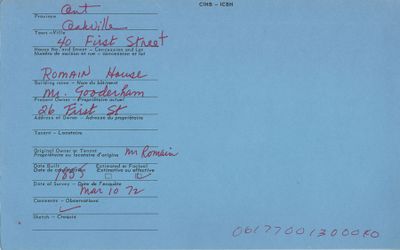 CIHB - ICBH
Ont
Province
Oakville
Town - Ville
40 First Street
House No. and Street - Concession and Lot
Numéro de maison et rue - concession et lot
ROMAIN House
Building name - Nom du bâtiment
Mr. Gooderham
Present Owner - Propriétaire actuel
26 First St
Address of Owner - Adresse du propriétaire
Tenant - Locataire
Original Owner or Tenant
Propriétaire ou locataire d'origine Mr Romain
Date Built Estimated or Factual
Date de construction Estimative ou effective
Date of Survey - Date de l'enquête
Mar 10 72
Comments - Observations
Sketch - Croquis
06177001300080